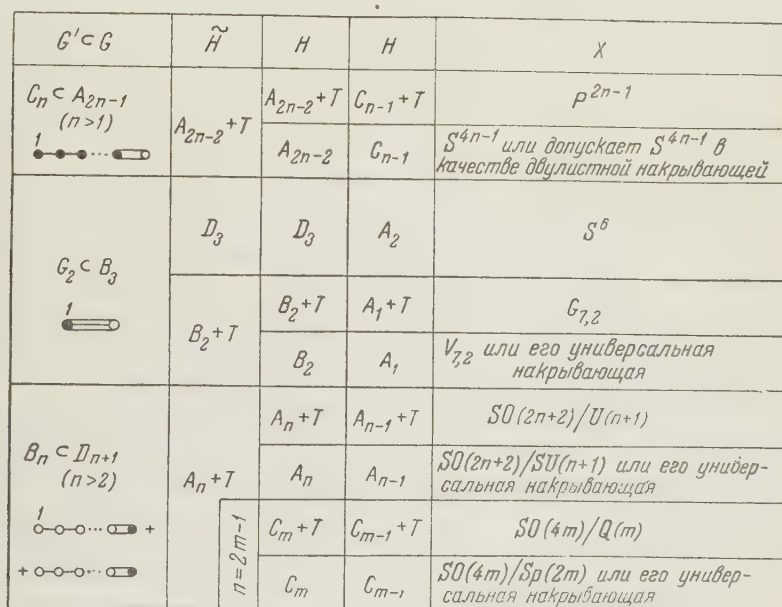 G' ⊂ G	H̃	H	H	X
C_n ⊂ A_{2n-1}
(n>1)
1
A_{2n-2}+T
A_{2n-2}+T	C_{n-1}+T	P^{2n-1}
A_{2n-2}	C_{n-1}	S^{4n-1} или допускает S^{4n-1} в
качестве двулистной накрывающей
G_2 ⊂ B_3
1
D_3	D_3	A_2	S^6
B_2+T
B_2+T	A_1+T	G_{7,2}
B_2	A_1	V_{7,2} или его универсальная
накрывающая
B_n ⊂ D_{n+1}
(n>2)
1
+
+
A_n+T
A_n+T	A_{n-1}+T	SO(2n+2)/U(n+1)
A_n	A_{n-1}	SO(2n+2)/SU(n+1) или его универ-
сальная накрывающая
n=2m-1
C_m+T	C_{m-1}+T	SO(4m)/Q(m)
C_m	C_{m-1}	SO(4m)/Sp(2m) или его универ-
сальная накрывающая